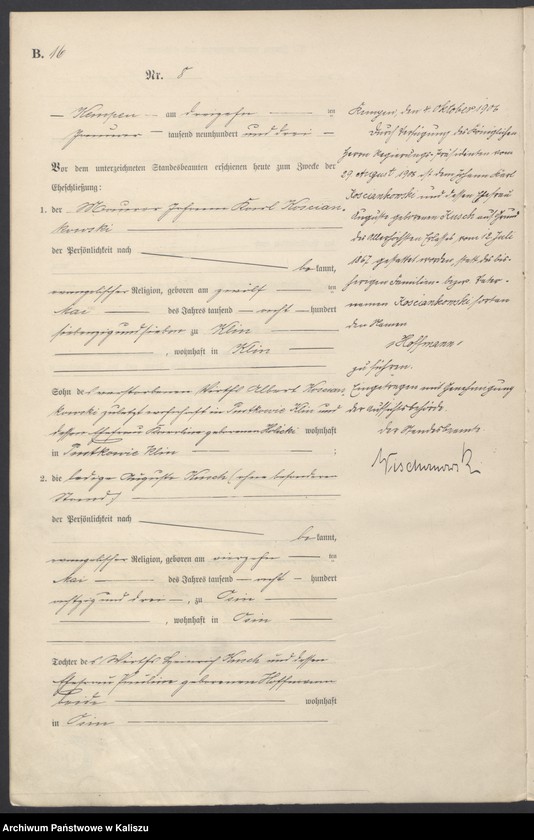 B. 16
Nr. 8
Kempen am dreizehn ten
Januar tausend neunhundert und drei
Vor dem unterzeichneten Standesbeamten erschienen heute zum Zwecke der
Eheschließung:
1. der Maurer Johann Karl Koscian-
kowski
der Persönlichkeit nach
be kannt,
evangelischer Religion, geboren am zwölf ten
Mai des Jahres tausend acht hundert
siebenzig und sieben zu Klin
, wohnhaft in Klin
Sohn des verstorbenen Wirths Albert Koscian-
kowski zuletzt wohnhaft in Klin und
dessen Ehefrau Karoline geborenen wohnhaft
in Klin ;
2. die ledige Auguste Kusch (ohne besonderen
Stand)
der Persönlichkeit nach
be kannt,
evangelischer Religion, geboren am vierzehn ten
Mai des Jahres tausend acht hundert
achtzig und drei , zu
, wohnhaft in
Tochter des Wirths Heinrich Kusch und dessen
Ehefrau Pauline geborenen Hoffmann
beide wohnhaft
in
Kempen, den 4. Oktober 1906
Durch Verfügung des Königlichen
Herrn Regierungs-Präsidenten vom
29 August ist dem Johann Karl
Kosciankowski und dessen Ehefrau
Auguste geborenen Kusch auf Grund
des Allerhöchsten Erlasses vom 12 Juli
1867 gestattet worden, statt des bis-
herigen Familien- bezw. Vater-
namens Kosciankowski fortan
den Namen
"Hoffmann"
zu führen.
Eingetragen mit Genehmigung
der Aufsichtsbehörde.
Der Standesbeamte
Archiwum Państwowe w Kaliszu